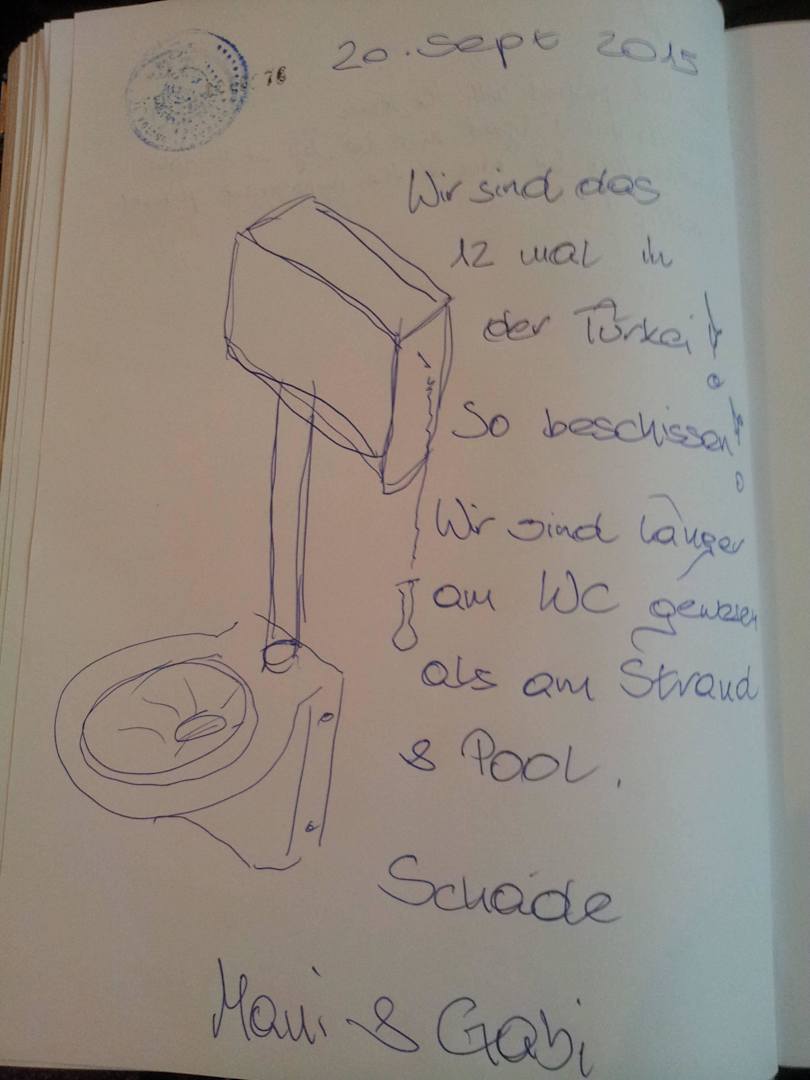 76
20. Sept 2015
Wir sind das
12 mal in
der Türkei!
So beschissen!
Wir sind länger
am WC gewesen
als am Strand
& Pool.
Schade
& Gabi